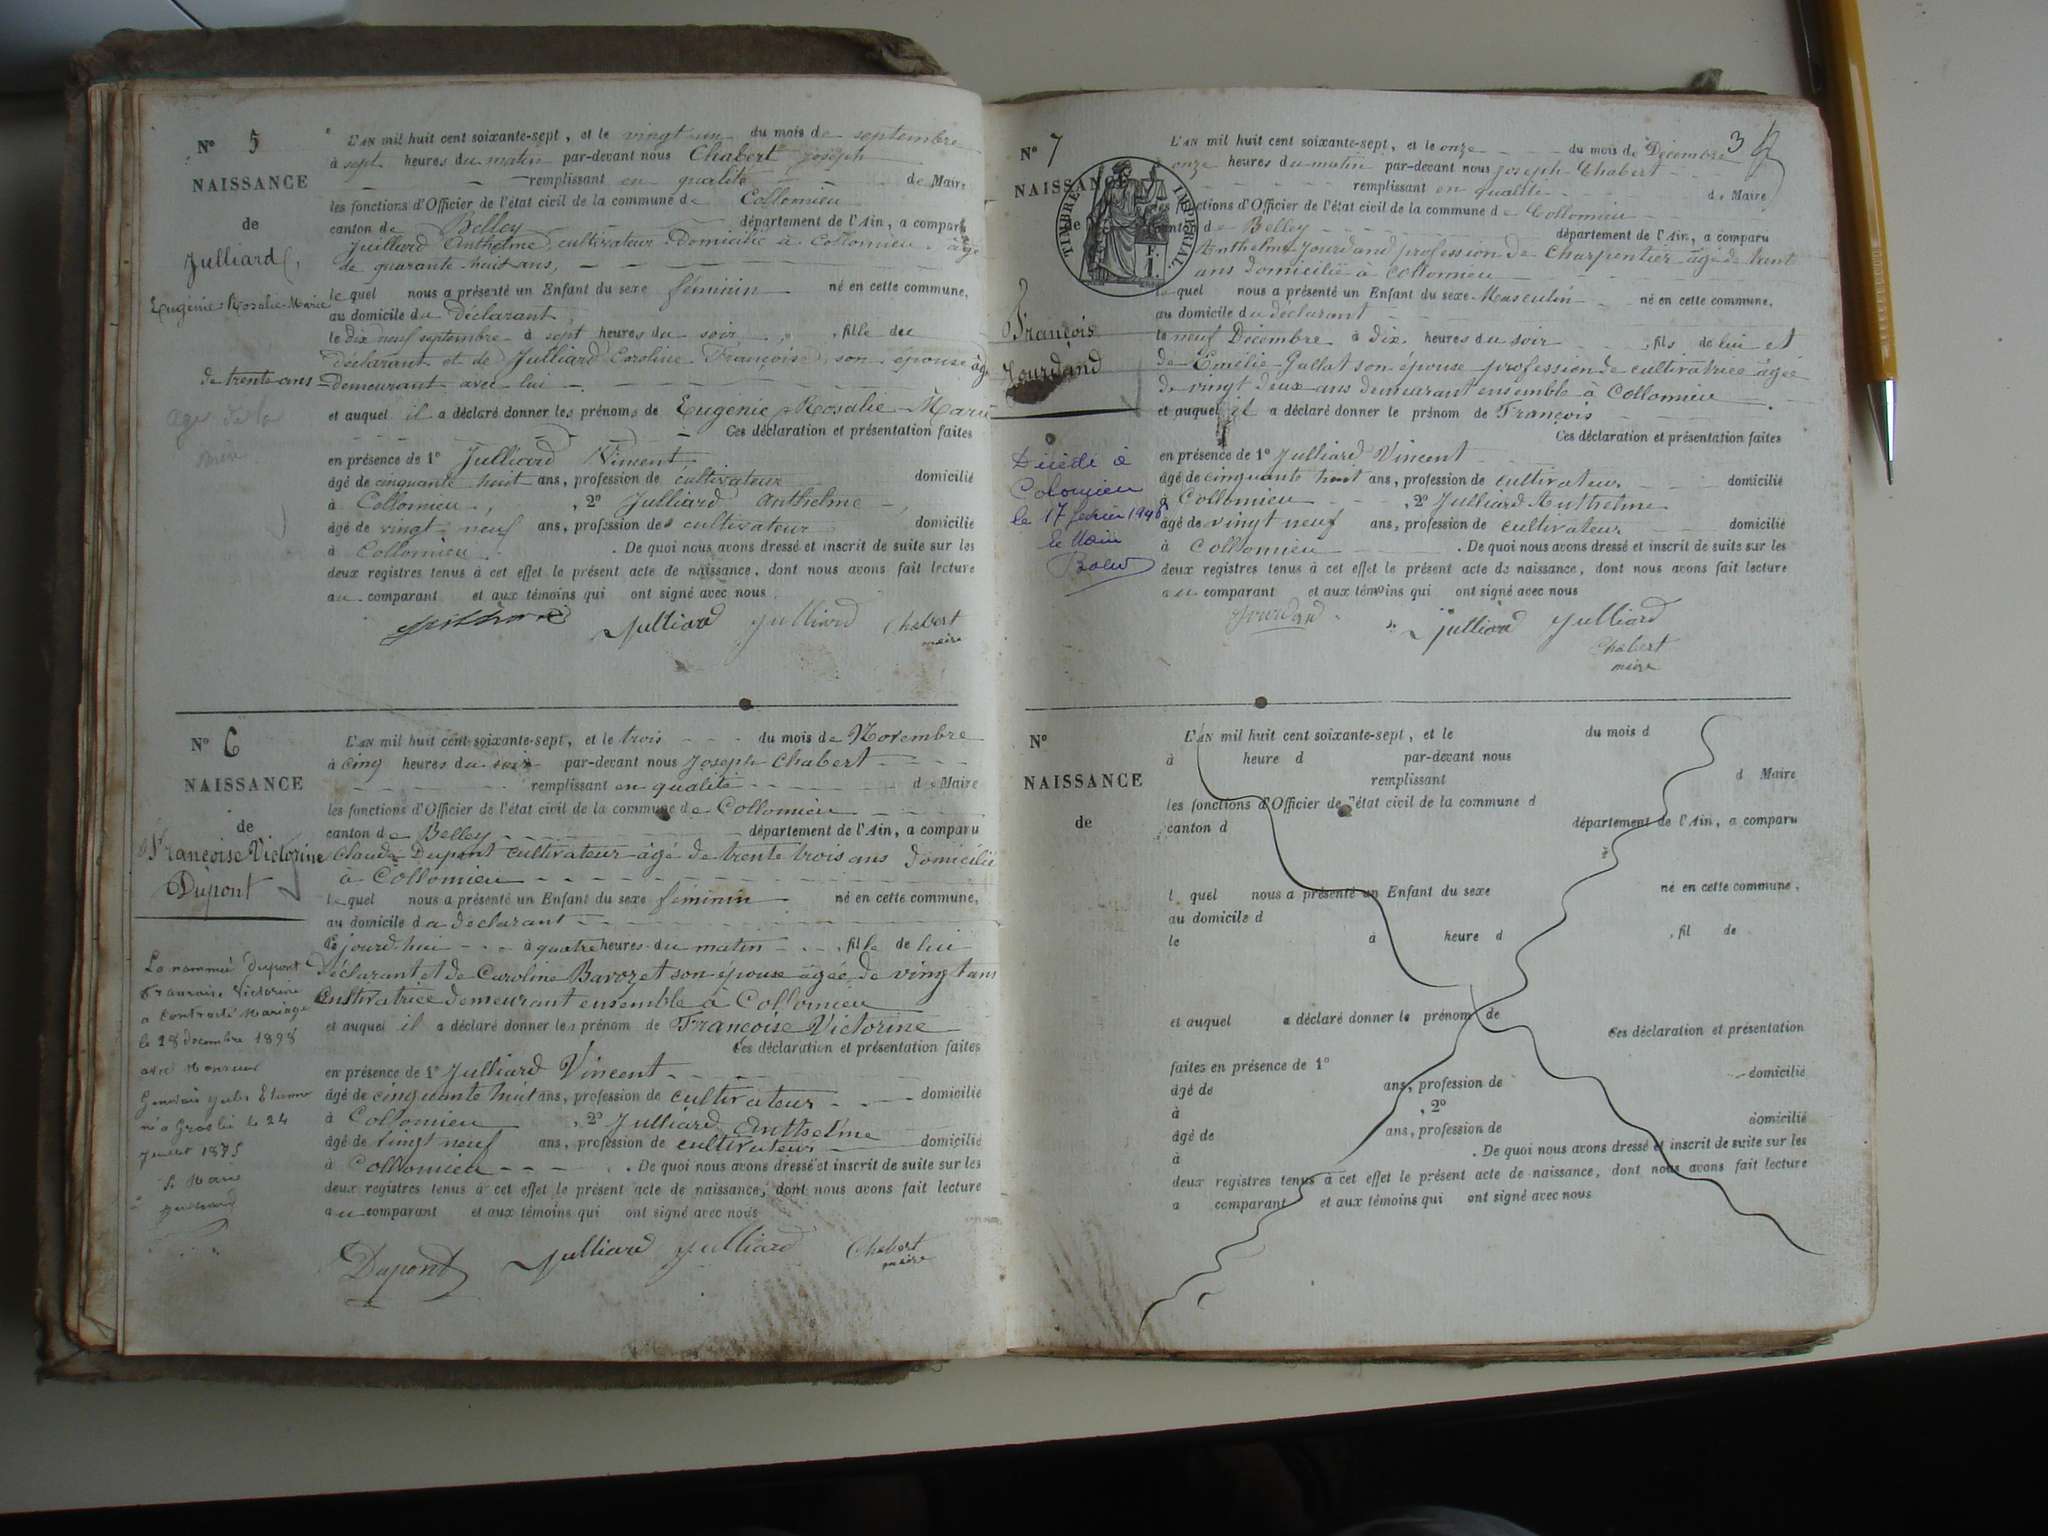 N° 5
NAISSANCE
de
Julliard,
Eugénie-Rosalie-Marie
L'AN mil huit cent soixante-sept, et le vingt un du mois de septembre
à sept heures du matin par-devant nous Chabert joseph
remplissant en qualité de Maire
les fonctions d'Officier de l'état civil de la commune de Collomieu
canton de Belley département de l'Ain, a comparu
Julliard Anthelme, cultivateur domicilié à Collomieu, âgé
de quarante-huit ans,
lequel nous a présenté un Enfant du sexe féminin né en cette commune,
au domicile du déclarant,
le dix neuf septembre à sept heures du soir, fille du
déclarant et de Julliard Caroline Françoise, son épouse âgée
de trente ans Demeurant avec lui
et auquel il a déclaré donner les prénoms de Eugénie-Rosalie-Marie
Ces déclaration et présentation faites
en présence de 1° Julliard Vincent,
âgé de cinquante huit ans, profession de cultivateur domicilié
à Collomieu, 2° Julliard Anthelme,
âgé de vingt-neuf ans, profession de cultivateur domicilié
à Collomieu. De quoi nous avons dressé et inscrit de suite sur les
deux registres tenus à cet effet le présent acte de naissance, dont nous avons fait lecture
au comparant et aux témoins qui ont signé avec nous
Julliard Julliard Chabert
maire
age de la
mère
N° 6
NAISSANCE
de
Françoise Victorine
Dupont
L'AN mil huit cent soixante-sept, et le trois du mois de Novembre
à cinq heures du soir par-devant nous Joseph Chabert
remplissant en qualité de Maire
les fonctions d'Officier de l'état civil de la commune de Collomieu
canton de Belley département de l'Ain, a comparu
Claude Dupont cultivateur âgé de trente trois ans domicilié
à Collomieu
lequel nous a présenté un Enfant du sexe féminin né en cette commune,
au domicile du déclarant
jourd'hui à quatre heures du matin, fille de lui
Déclarant et de Caroline Bavozet son épouse âgée de vingt ans
Cultivatrice demeurant ensemble à Collomieu
et auquel il a déclaré donner les prénom de Françoise Victorine
Ces déclaration et présentation faites
en présence de 1° Julliard Vincent
âgé de cinquante huit ans, profession de cultivateur domicilié
à Collomieu, 2° Julliard Anthelme
âgé de vingt neuf ans, profession de cultivateur domicilié
à Collomieu. De quoi nous avons dressé et inscrit de suite sur les
deux registres tenus à cet effet le présent acte de naissance, dont nous avons fait lecture
au comparant et aux témoins qui ont signé avec nous
Dupont Julliard Julliard Chabert
maire
La nommée Dupont
Françoise Victorine
a contracté mariage
le 28 décembre 1898
avec Monsieur
Jules Etienne
né à Groslée le 24
juillet 1875
Le Maire
N° 7
NAISSANCE
de
TIMBRE IMPERIAL
François
Jourdand
3
L'AN mil huit cent soixante-sept, et le onze du mois de Décembre
onze heures du matin par-devant nous joseph Chabert
remplissant en qualité de Maire
les fonctions d'Officier de l'état civil de la commune de Collomieu
canton de Belley département de l'Ain, a comparu
Anthelme Jourdand profession de Charpentier âgé de trent
ans domicilié à Collomieu
lequel nous a présenté un Enfant du sexe Masculin né en cette commune,
au domicile du déclarant
le neuf Décembre à dix heures du soir, fils de lui et
de Emélie Gallat son épouse profession de cultivatrice âgée
de vingt deux ans demeurant ensemble à Collomieu
et auquel il a déclaré donner le prénom de François
Ces déclaration et présentation faites
en présence de 1° Julliard Vincent
âgé de cinquante huit ans, profession de cultivateur domicilié
à Collomieu, 2° Julliard Anthelme
âgé de vingt neuf ans, profession de cultivateur domicilié
à Collomieu. De quoi nous avons dressé et inscrit de suite sur les
deux registres tenus à cet effet le présent acte de naissance, dont nous avons fait lecture
au comparant et aux témoins qui ont signé avec nous
Jourdand Julliard Julliard
Chabert
maire
Décédé à
Colomieu
le 17 février
le Maire
N°
NAISSANCE
de
L'AN mil huit cent soixante-sept, et le du mois d
à heure d par-devant nous
remplissant d Maire
les fonctions d'Officier de l'état civil de la commune d
canton d département de l'Ain, a comparu
l quel nous a présenté un Enfant du sexe né en cette commune,
au domicile d
le à heure d , fil de
et auquel a déclaré donner le prénom de
Ces déclaration et présentation
faites en présence de 1°
âgé de ans, profession de domicilié
à , 2°
âgé de ans, profession de domicilié
à . De quoi nous avons dressé et inscrit de suite sur les
deux registres tenus à cet effet le présent acte de naissance, dont nous avons fait lecture
a comparant et aux témoins qui ont signé avec nous